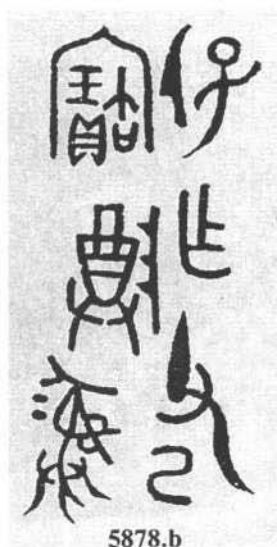 仔乍父己
寶尊彝
5878.b